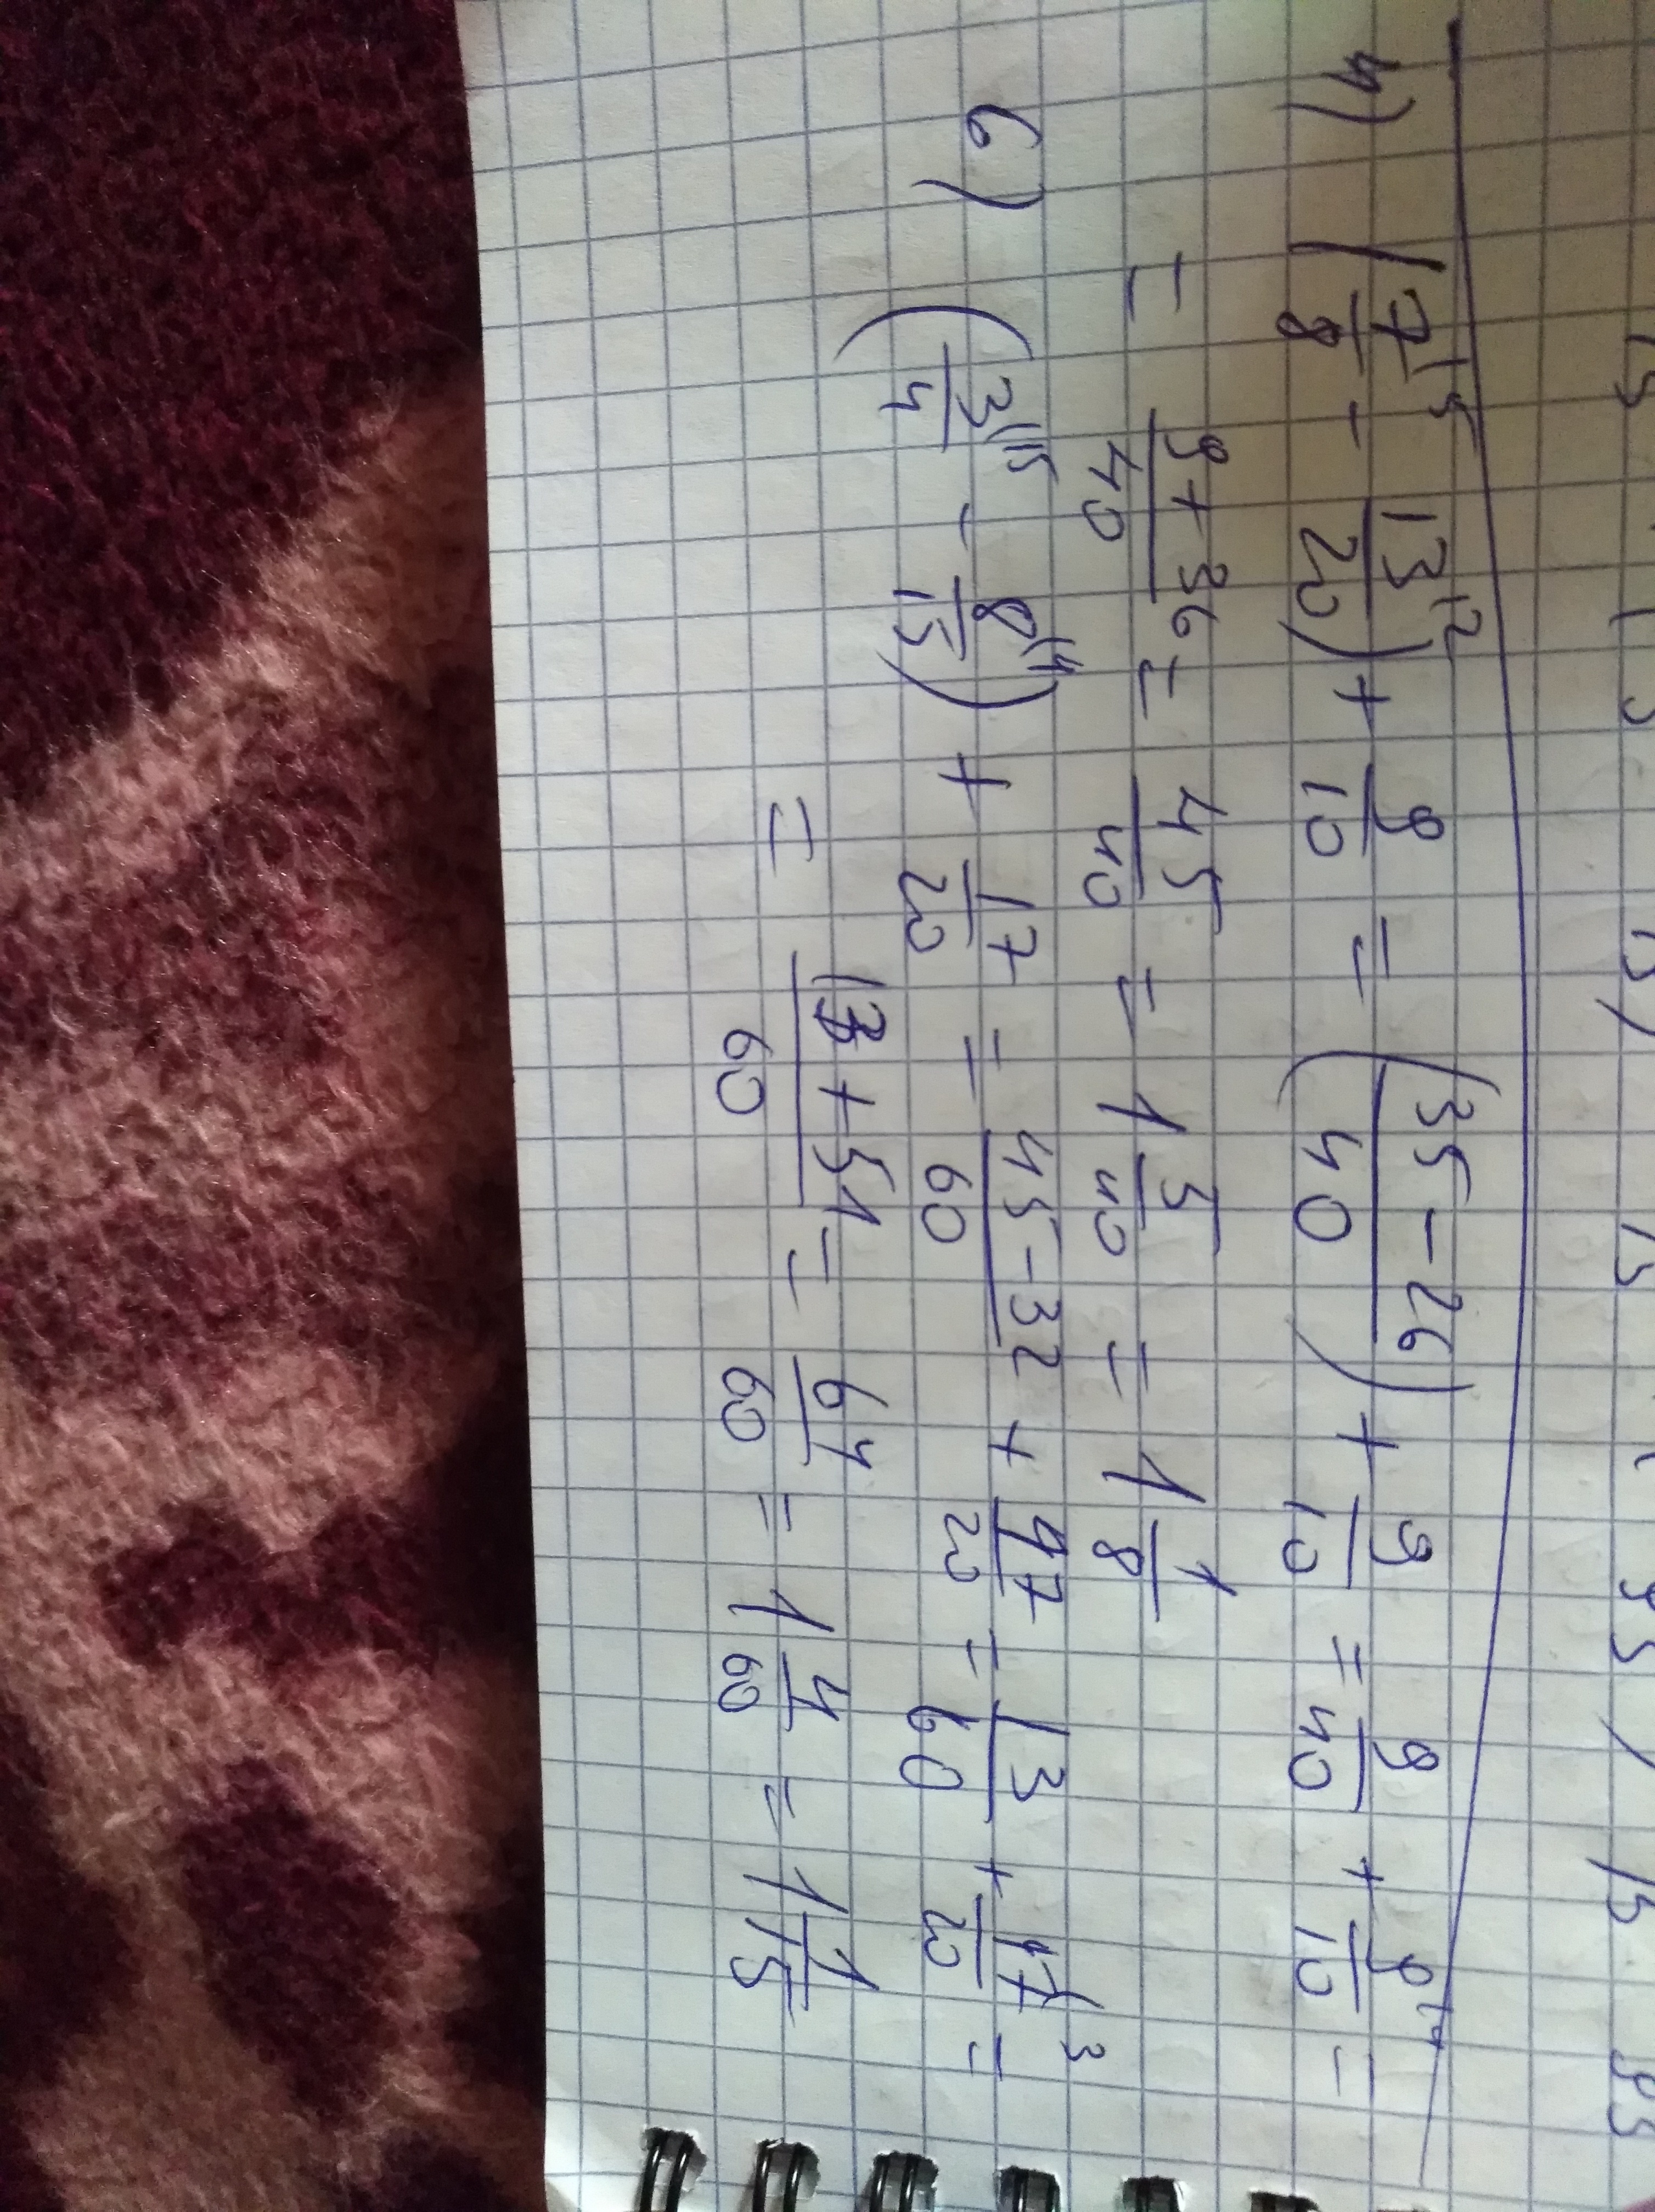 4) (7/8 ⁽⁵ - 13/20 ⁽²) + 9/10 = (35-26/40) + 9/10 = 9/40 + 9/10 ⁽⁴ =
= 9+36/40 = 45/40 = 1 5/40 = 1 1/8
6) (3/4 ⁽¹⁵ - 8/15 ⁽⁴) + 17/20 = 45-32/60 + 17/20 = 13/60 + 17/20 ⁽³ =
= 13+51/60 = 64/60 = 1 4/60 = 1 1/15